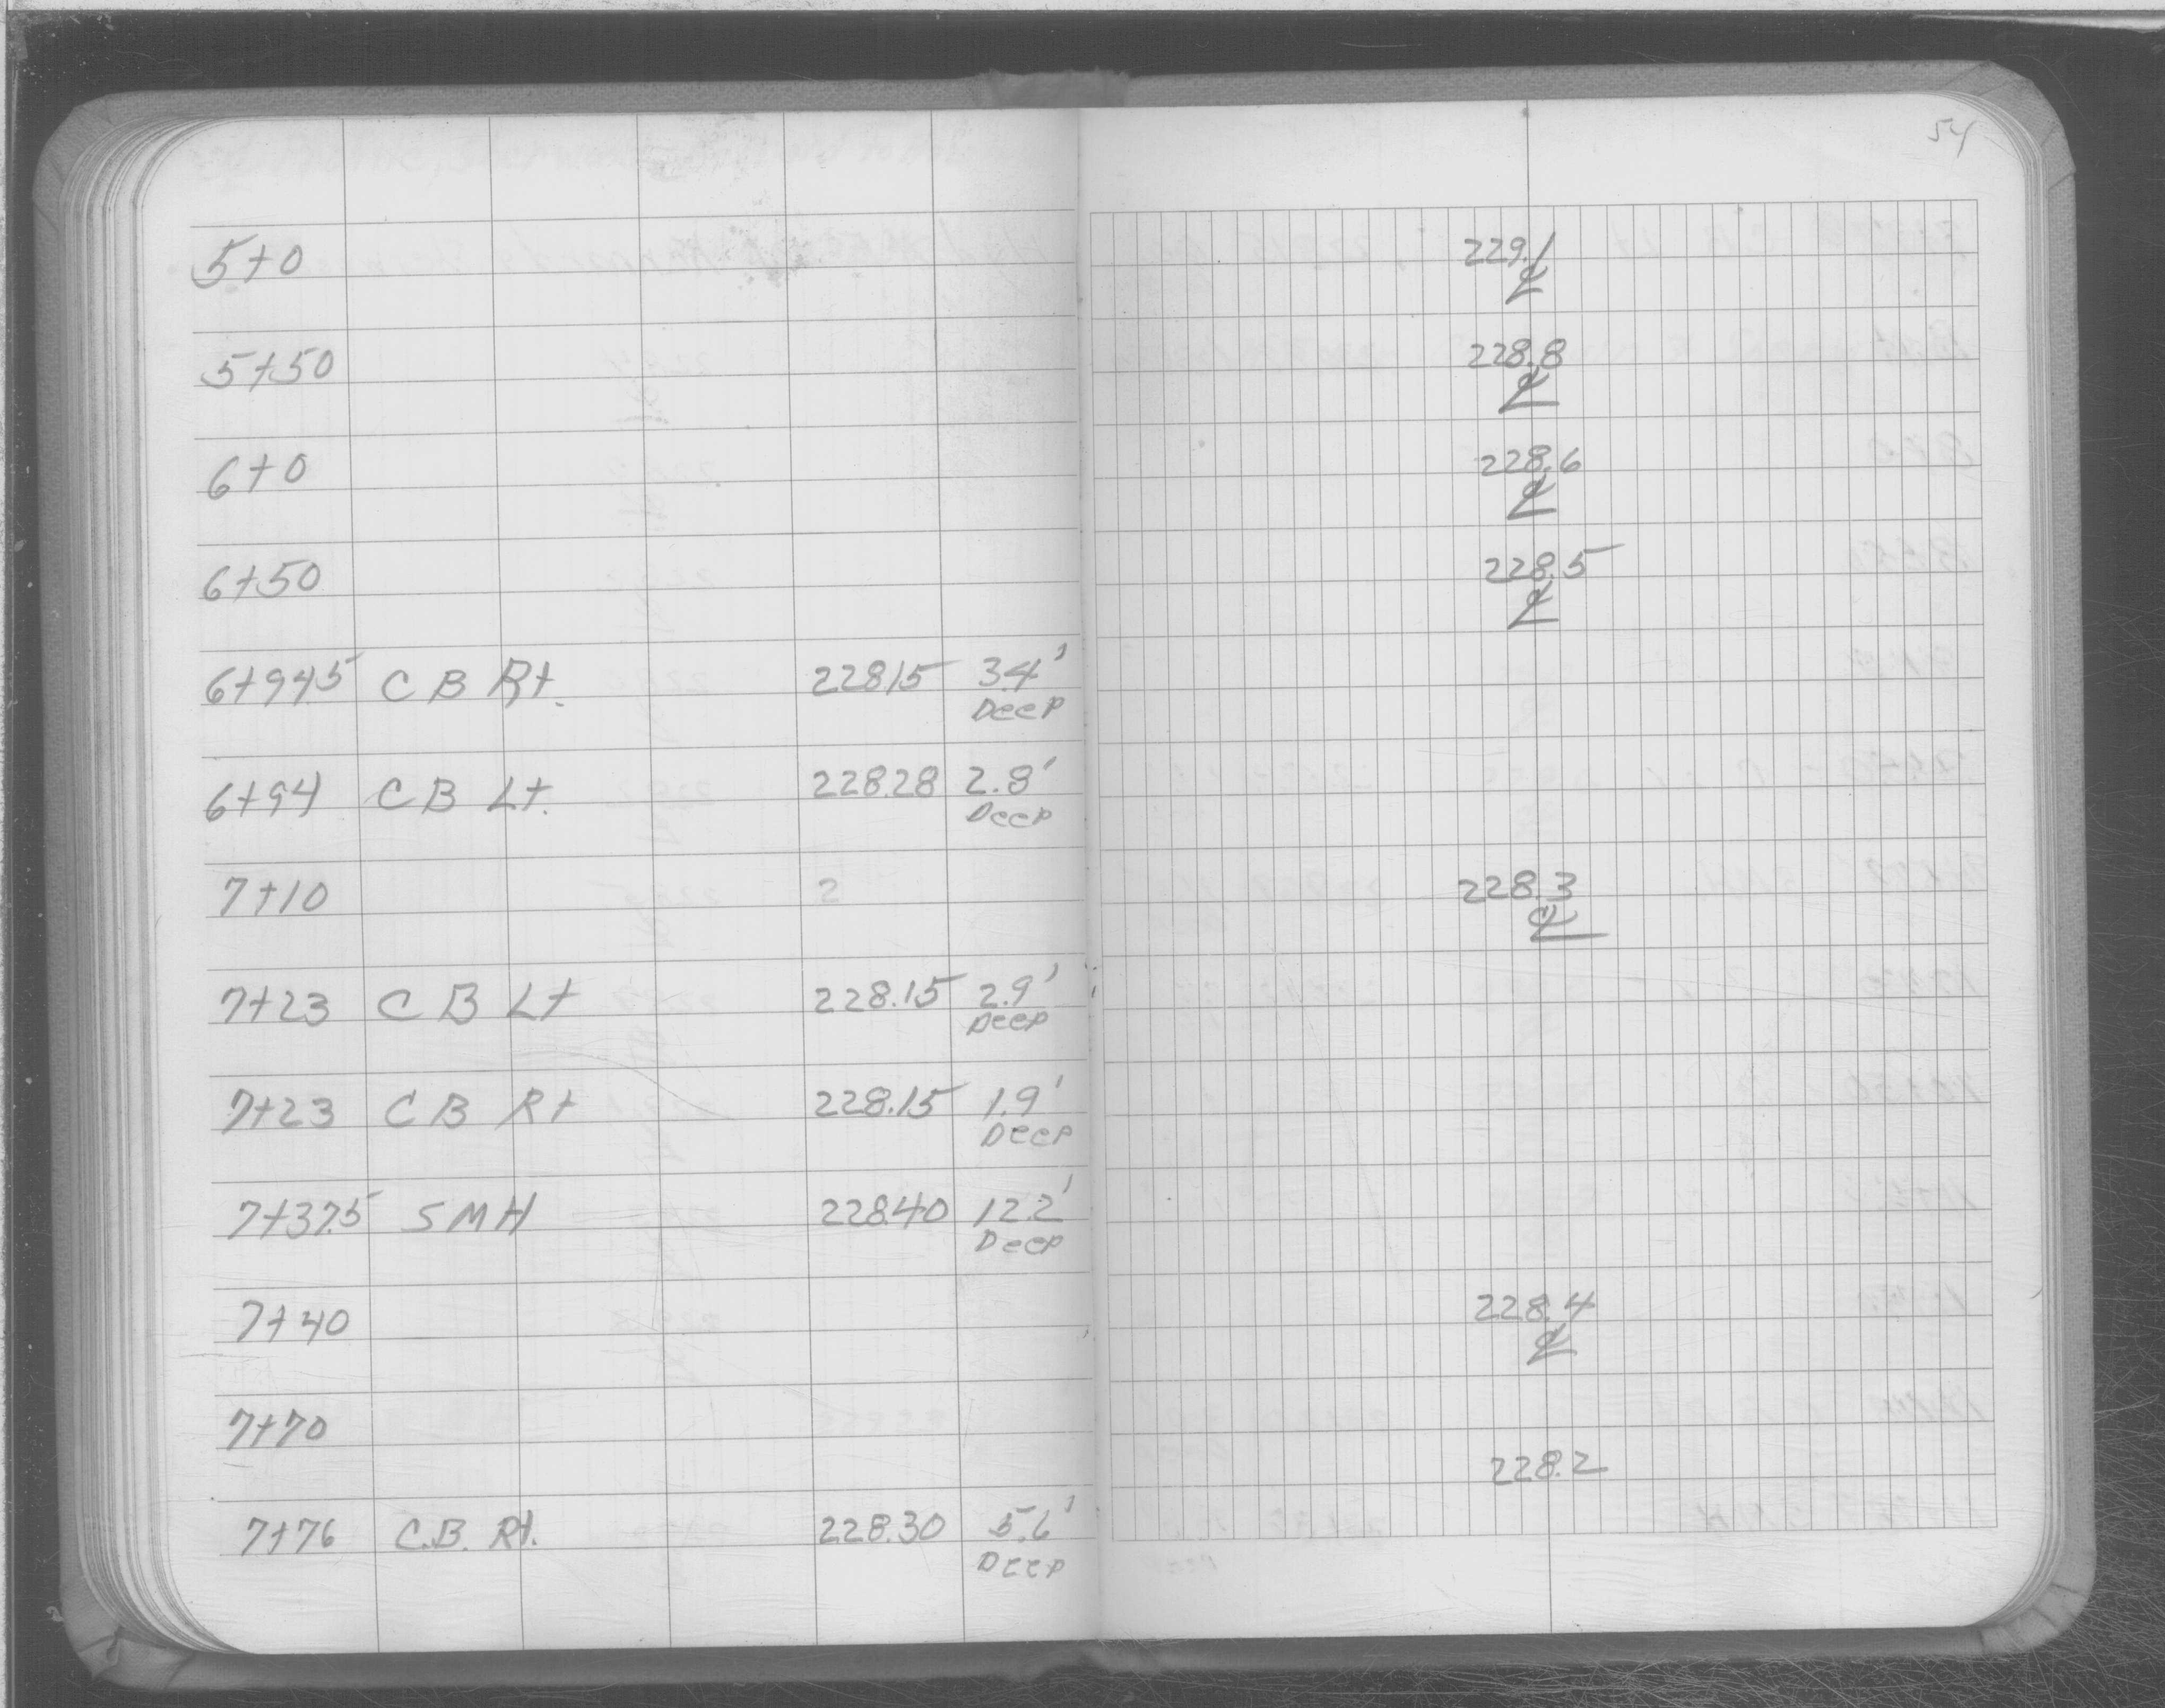 54
5+0 229.1
℄
5+50 228.8
℄
6+0 228.6
℄
6+50 228.5
℄
6+94.5 C B Rt. 228.15 3.4'
Deep
6+94 C B Lt. 228.28 2.8'
Deep
7+10 2 228.3
℄
7+23 C B Lt 228.15 2.9'
Deep
7+23 C B Rt 228.15 1.9'
Deep
7+37.5 S M H 228.40 12.2'
Deep
7+40 228.4
℄
7+70
228.2
7+76 C.B. Rt. 228.30 5.6'
Deep